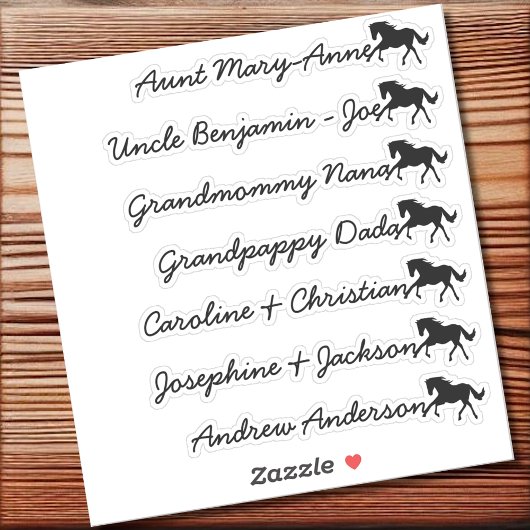 Aunt Mary-Anne
Uncle Benjamin - Joe
Grandmommy Nana
Grandpappy Dada
Caroline + Christian
Josephine + Jackson
Andrew Anderson
Zazzle